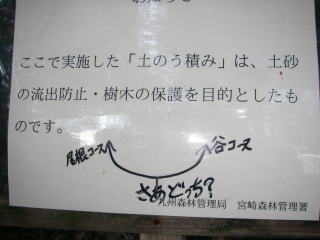 お知らせ
ここで実施した「土のう積み」は、土砂
の流出防止・樹木の保護を目的としたも
のです。
尾根コース 谷コース
さあどっち?
九州森林管理局 宮崎森林管理署